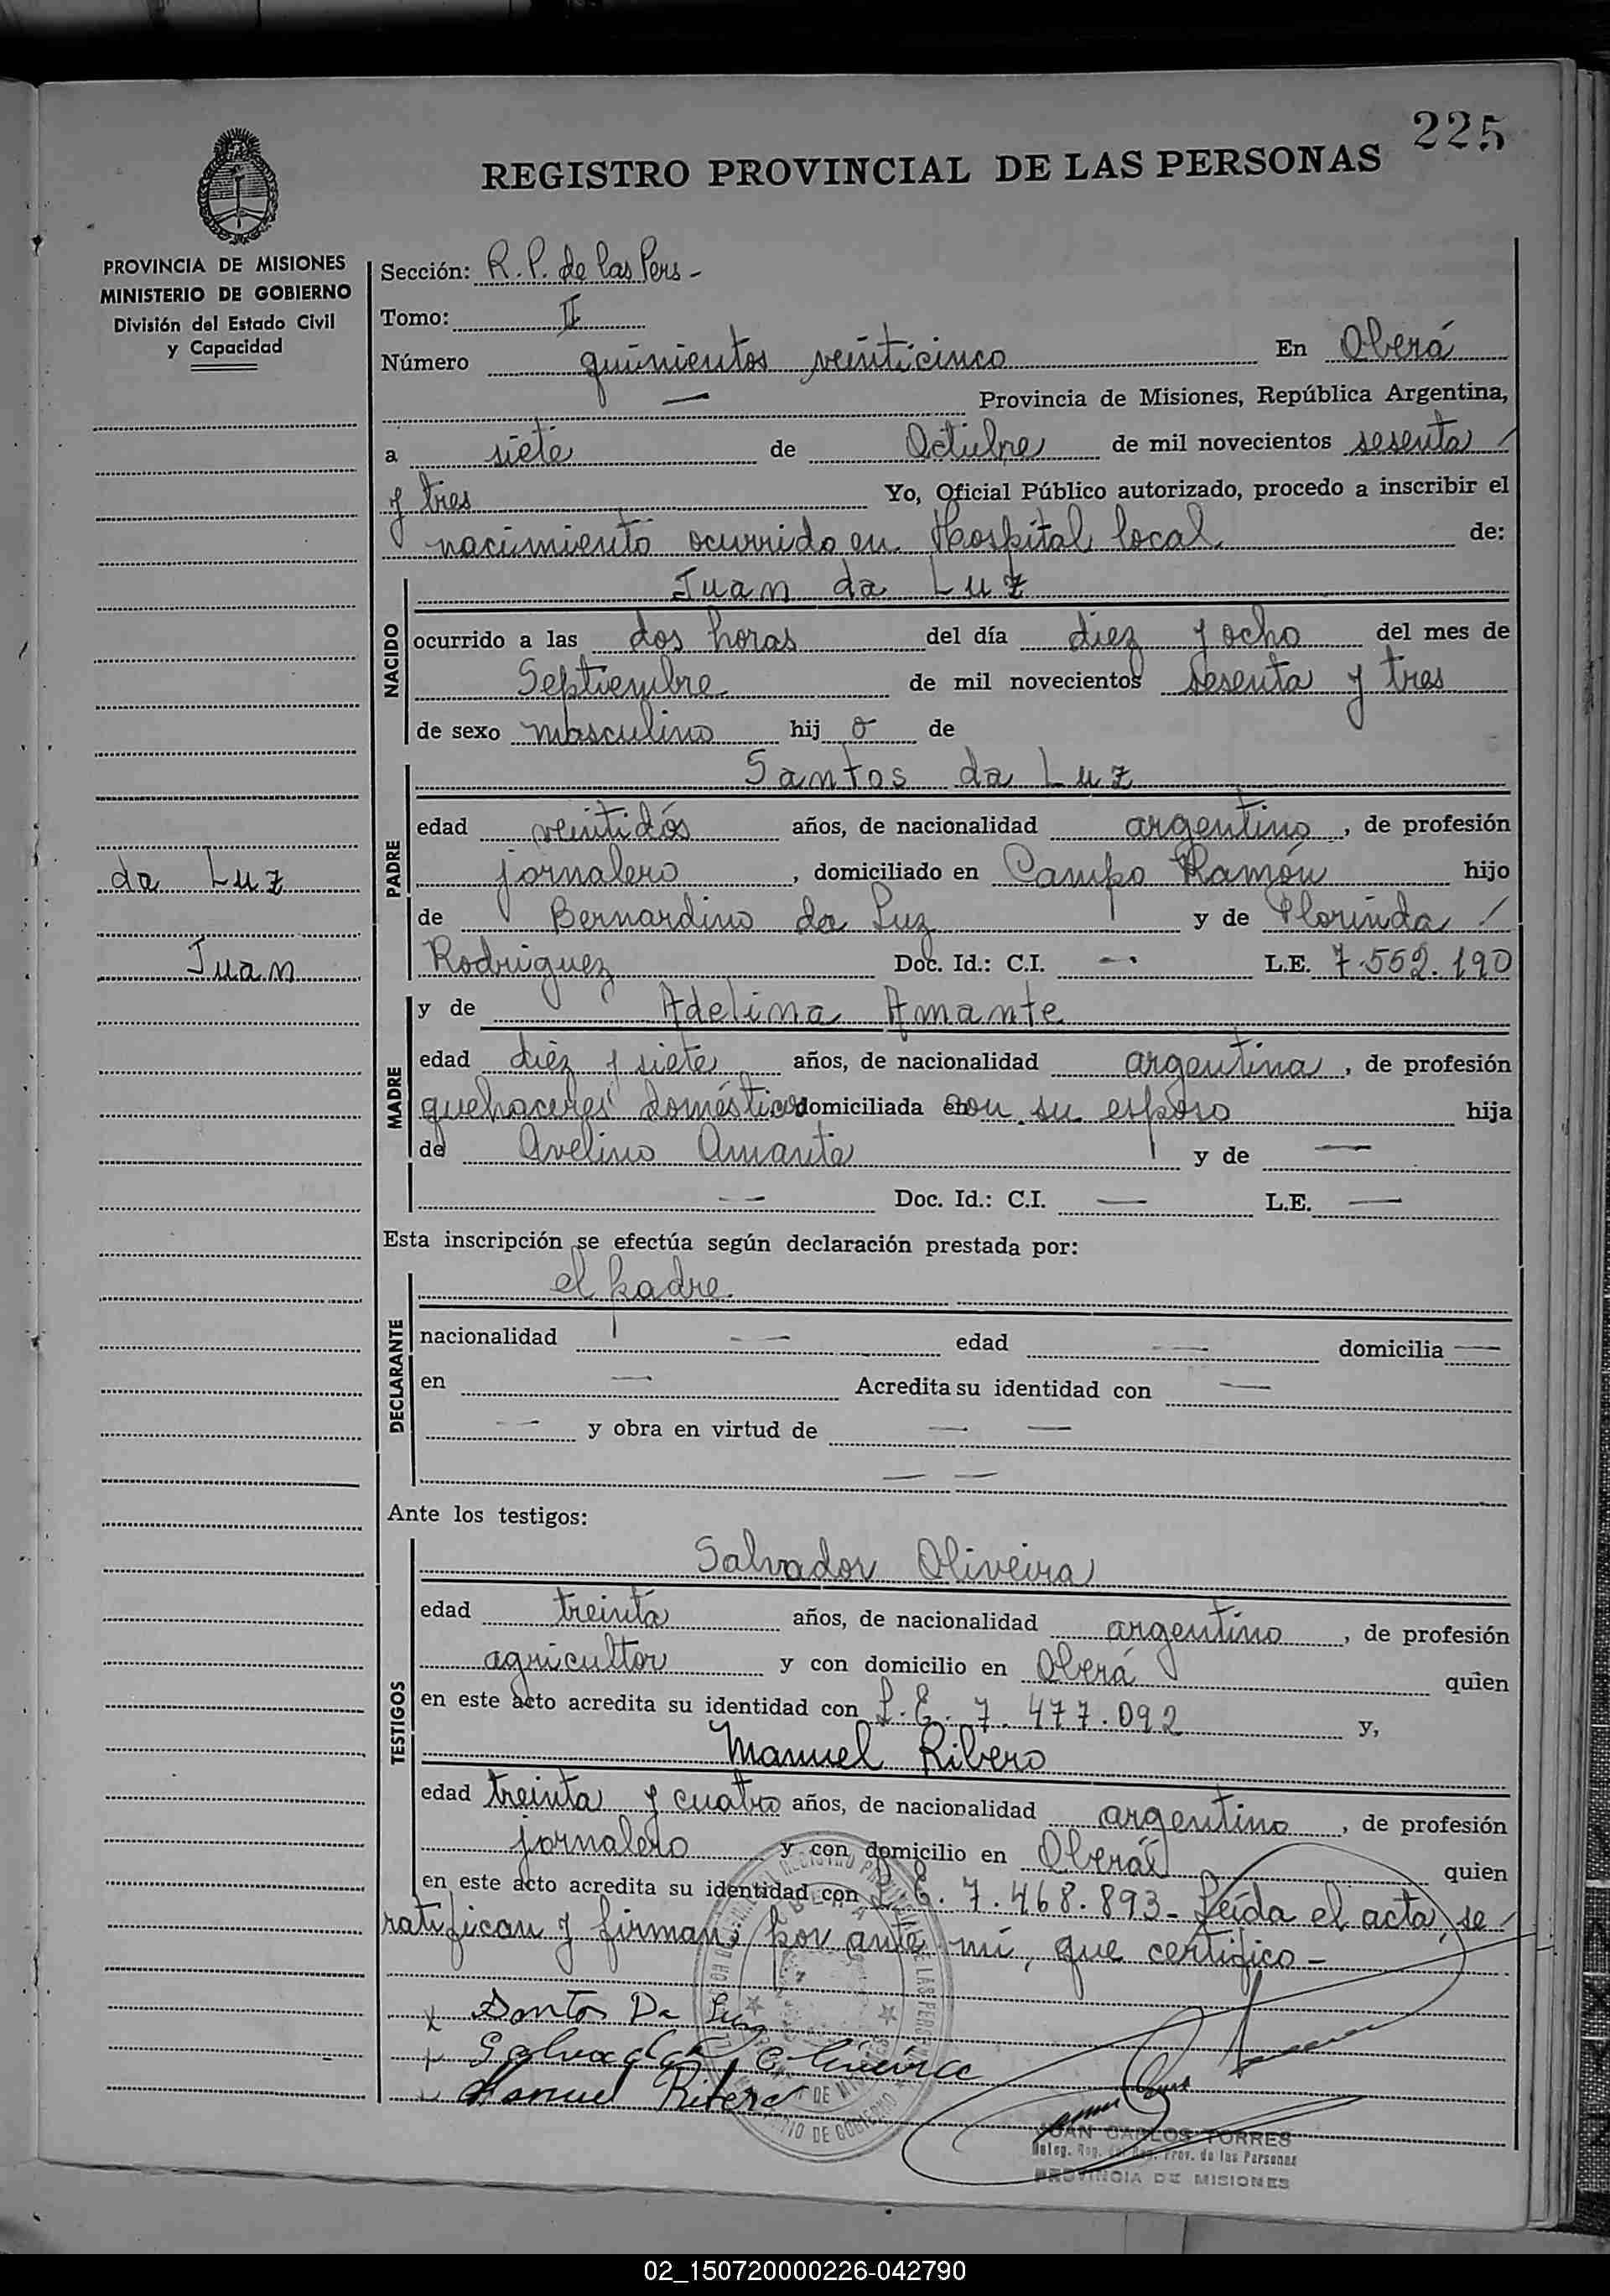 225
REGISTRO PROVINCIAL DE LAS PERSONAS
PROVINCIA DE MISIONES
MINISTERIO DE GOBIERNO
División del Estado Civil
y Capacidad
Sección: R. P. de las Pers -
Tomo: II
Número quinientos veinticinco En Oberá
— Provincia de Misiones, República Argentina,
a siete de Octubre de mil novecientos sesenta /
y tres Yo, Oficial Público autorizado, procedo a inscribir el
nacimiento ocurrido en Hospital local de:
NACIDO
Juan da Luz
ocurrido a las dos horas del día diez y ocho del mes de
Septiembre de mil novecientos sesenta y tres
de sexo masculino hij o de
PADRE
Santos da Luz
edad veintidós años, de nacionalidad argentino, de profesión
jornalero, domiciliado en Campo Ramón hijo
de Bernardino da Luz y de Florinda /
Rodriguez Doc. Id.: C.I. — L.E. 7.552.190
da Luz
Juan
MADRE
y de Adelina Amante
edad diez y siete años, de nacionalidad argentina, de profesión
quehaceres domésticos domiciliada en con su esposo hija
de Avelino Amante y de —
— Doc. Id.: C.I. — L.E. —
Esta inscripción se efectúa según declaración prestada por:
DECLARANTE
el padre
nacionalidad — edad — domicilia —
en — Acredita su identidad con —
— y obra en virtud de — —
— —
Ante los testigos:
TESTIGOS
Salvador Oliveira
edad treinta años, de nacionalidad argentino, de profesión
agricultor y con domicilio en Oberá quien
en este acto acredita su identidad con L.E. 7.477.092 y,
Manuel Ribero
edad treinta y cuatro años, de nacionalidad argentino, de profesión
jornalero y con domicilio en Oberá quien
en este acto acredita su identidad con L.E. 7.468.893 - Leída el acta, se /
ratifican y firman, por ante mí, que certifico -
x Santos Da Luz
x Salvador Oliveira
x Manuel Ribero
JUAN CARLOS TORRES
Prov. de las Personas
PROVINCIA DE MISIONES
02_150720000226-042790